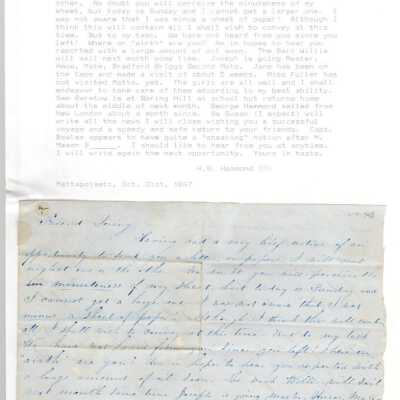 other. No doubt you will perceive the minuteness of my
sheet, but today is Sunday and I cannot get a larger one. I
was not aware that I was minus a sheet of paper! Although I
think this will contain all I shall wish to convey at this
time. But to my task. We have not heard from you since you
left! Where on "airth" are you? Am in hopes to hear you
reported with a large amount of oil soon. The Bark Willis
will sail next month some time. Joseph is going Master,
Amos, Mate, Bradford Briggs Second Mate. Jane has been on
the Cape and made a visit of about 5 weeks. Miss Fuller has
not visited Matto. yet. The girls are all well and I shall
endeavor to take care of them according to my best ability.
Sam is at Spring Hill at school but returns home
about the middle of next month. George Hammond sailed from
New London about a month since. As Susan (I expect) will
write all the news I will close wishing you a successful
voyage and a speedy and safe return to your friends. Capt.
Bowles appears to have quite a "sneaking" notion after M.
Mason S______. I should like to hear from you at anytime.
I will write again the next opportunity. Yours in haste.
Hammond
Mattapoisett, Oct. 31st, 1847
Friend
Having had a very brief notice of an
opportunity to send you a letter or paper, I will not
neglect one or the other. No doubt you will perceive the
minuteness of my sheet, but today is Sunday and
I cannot get a large one. I was not aware that I was
minus a sheet of paper! Although I think this will contain
all I shall wish to convey at this time. But to my task
We have not heard from you since you left! Where on
"airth" are you? Am in hopes to hear you reported with
a large amount of oil soon. The Bark Willis will sail
next month some time Joseph is going Master, Amos, Mate